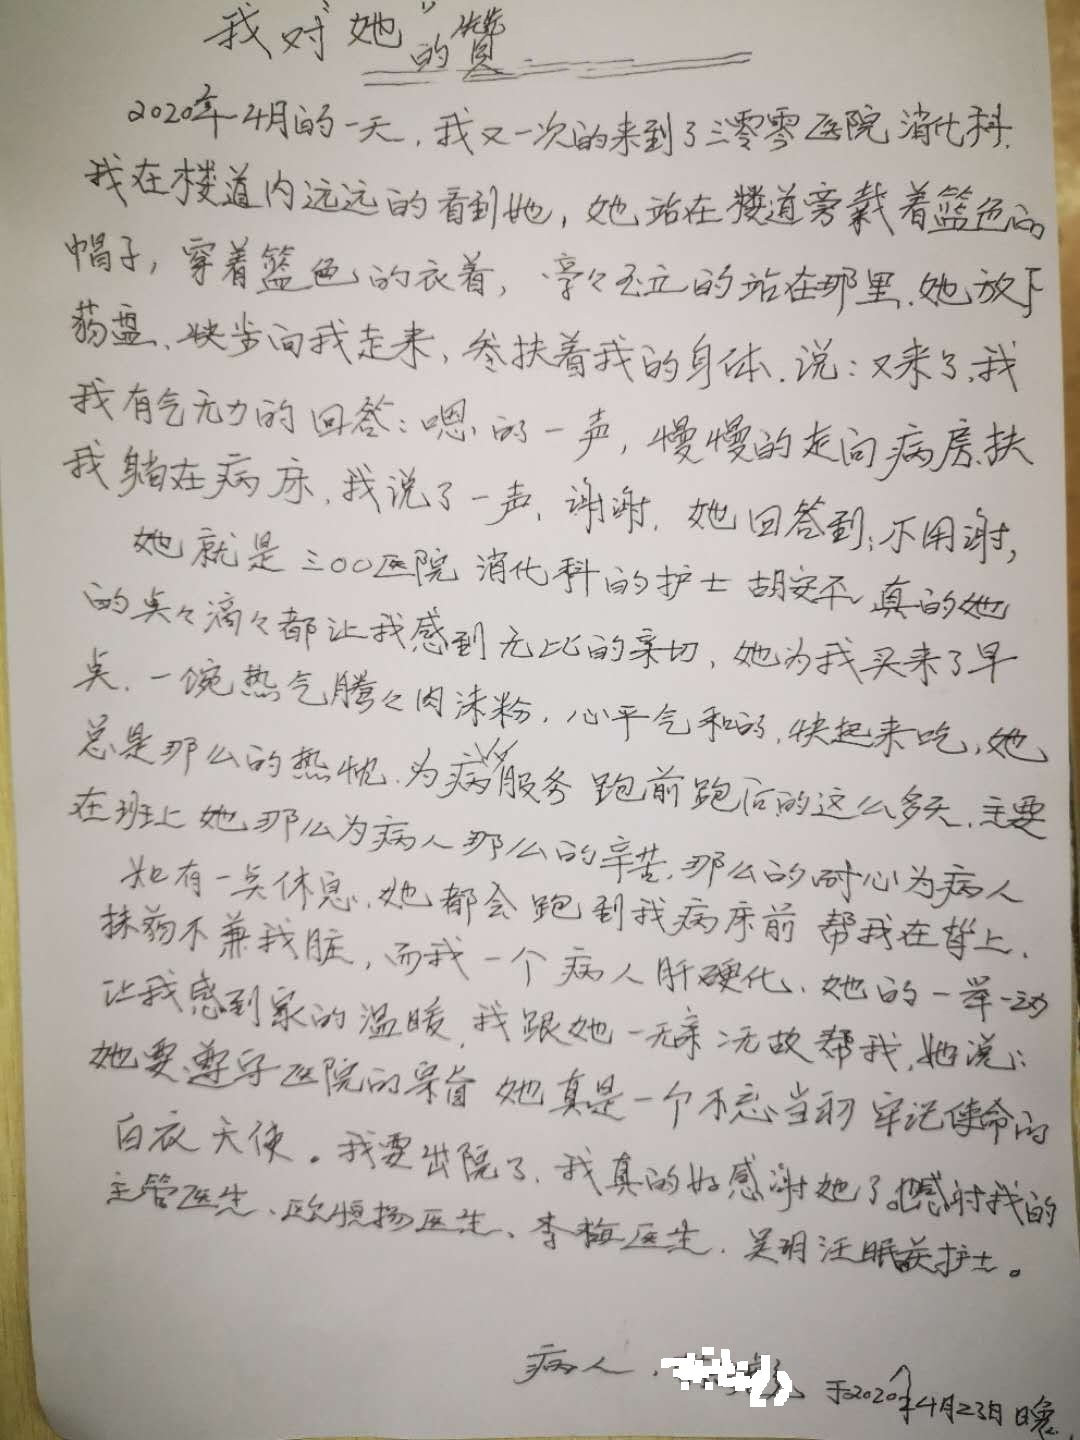 我对"她"的赞
2020年4月的一天，我又一次的来到了三零零医院消化科.
我在楼道内远远的看到她，她站在楼道旁戴着篮色的
帽子，穿着篮色的衣着，亭々玉立的站在那里.她放下
药盘、快步向我走来，参扶着我的身体.说：又来了，我
我有气无力的回答：嗯的一声，慢慢的走向病房，扶
我躺在病床，我说了一声，谢谢，她回答到：不用谢，
她就是三00医院消化科的护士胡安 真的她
的点々滴々都让我感到无比的亲切，她为我买来了早
点.一碗热气腾々肉沫粉，心平气和的，快起来吃，她
总是那么的热忱.为病人服务跑前跑后的这么多天.主要
在班上她那么为病人那么的辛苦.那么的耐心为病人
她有一点休息，她都会跑到我病床前帮我在背上.
抹药不兼我脏，而我一个病人肝硬化、她的一举一动
让我感到家的温暖，我跟她一无亲二无故帮我，她说：
她要遵守医院的宗旨 她真是一个不忘当初牢记使命的
白衣天使。我要出院了、我真的好感谢她了。感谢我的
主管医生、欧恒扬医生、李梅医生.吴玥汪眠 护士。
病人.
于2020年4月23日晚.